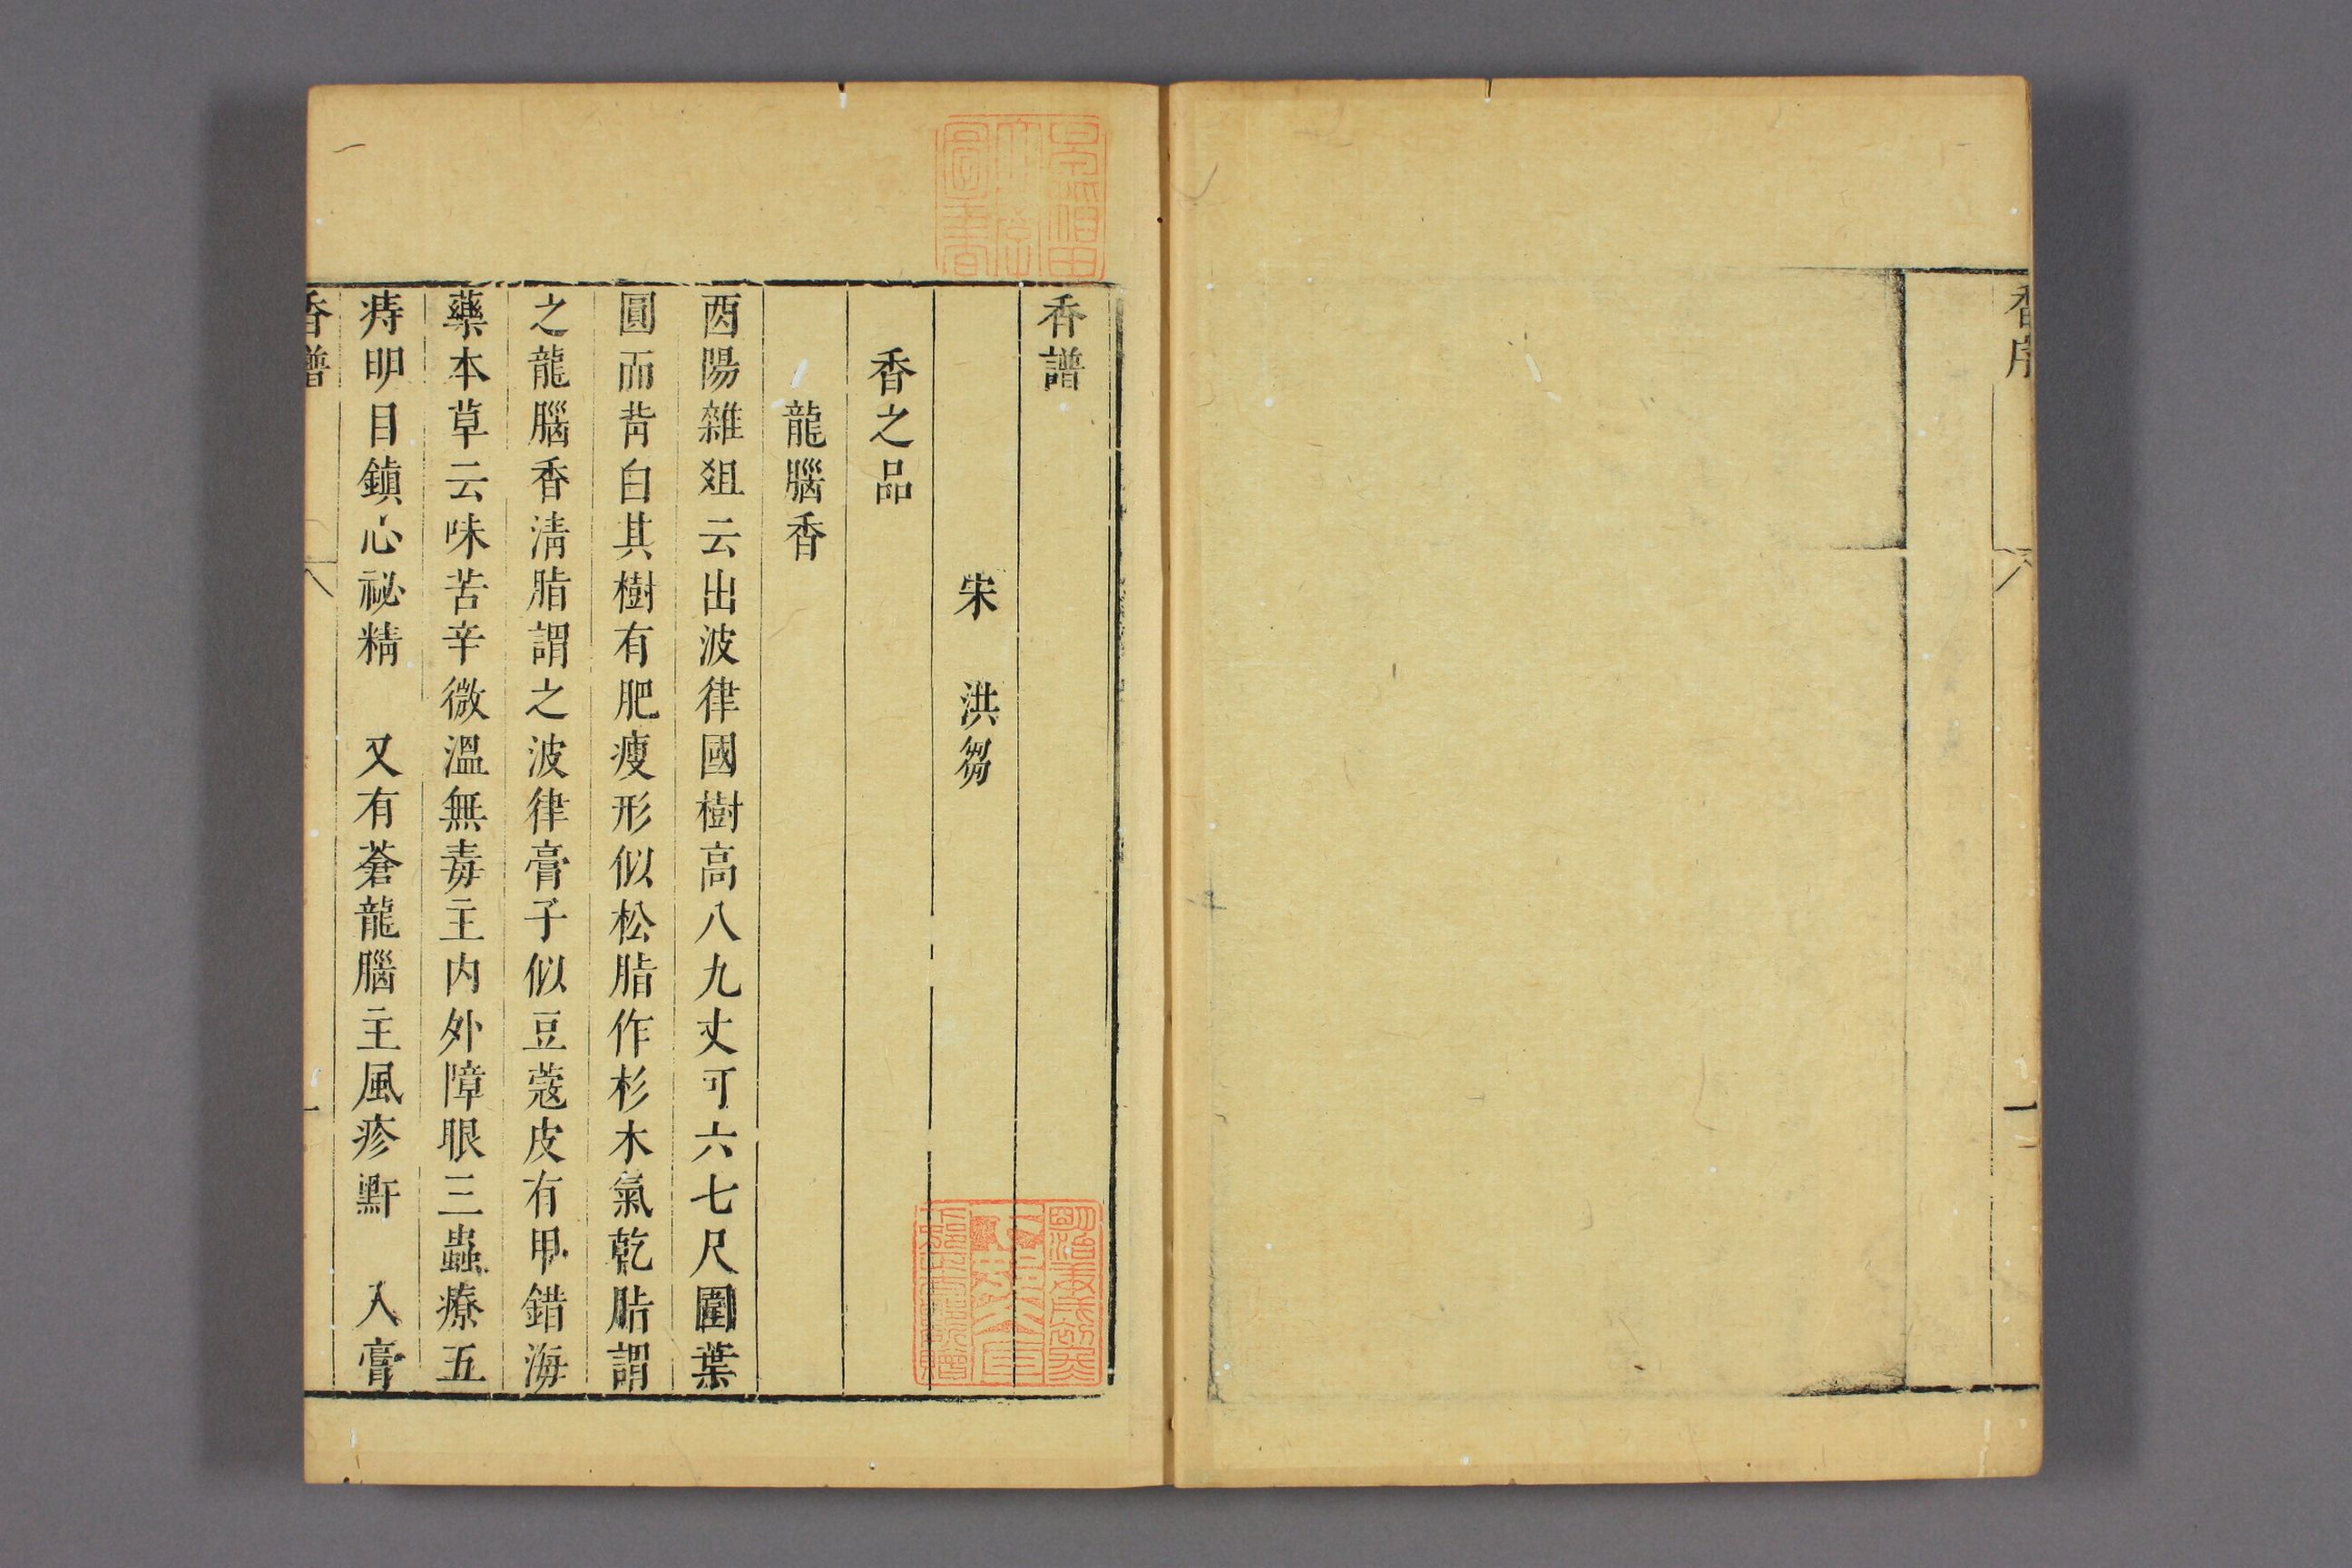 香序
二
香譜
宋　洪芻
香之品
龍腦香
酉陽雜爼云出波律國樹高八九丈可六七尺圍葉
圓而背白其樹有肥瘦形似松脂作杉木氣乾脂謂
之龍腦香淸脂謂之波律膏子似豆蔻皮有甲錯海
藥本草云味苦辛微溫無毒主内外障眼三蟲療五
痔明目鎭心祕精　又有蒼龍腦主風疹䵟　入膏
香譜
一